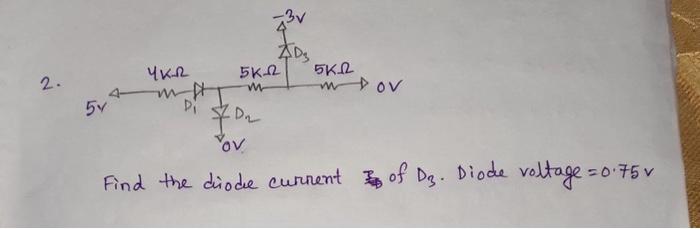 -3v
D3
2. 4KΩ 5KΩ 5KΩ
5v D1 0V
D2
0V
Find the diode current of D3. Diode voltage = 0.75v